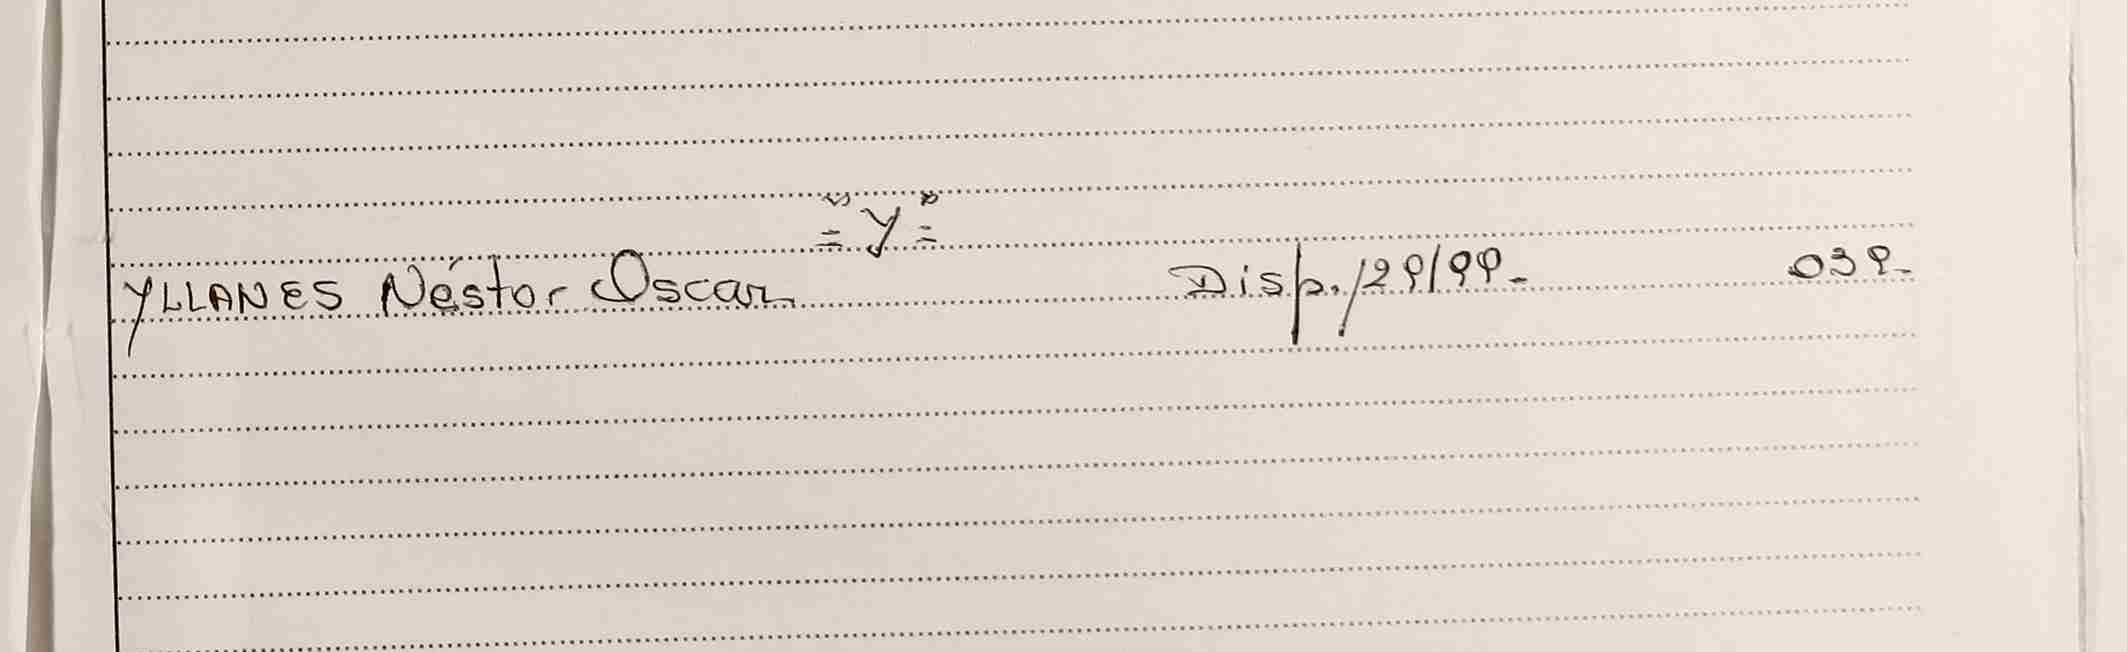 ="Y"=
YLLANES Néstor Oscar Disp. 129/99.- 039.-